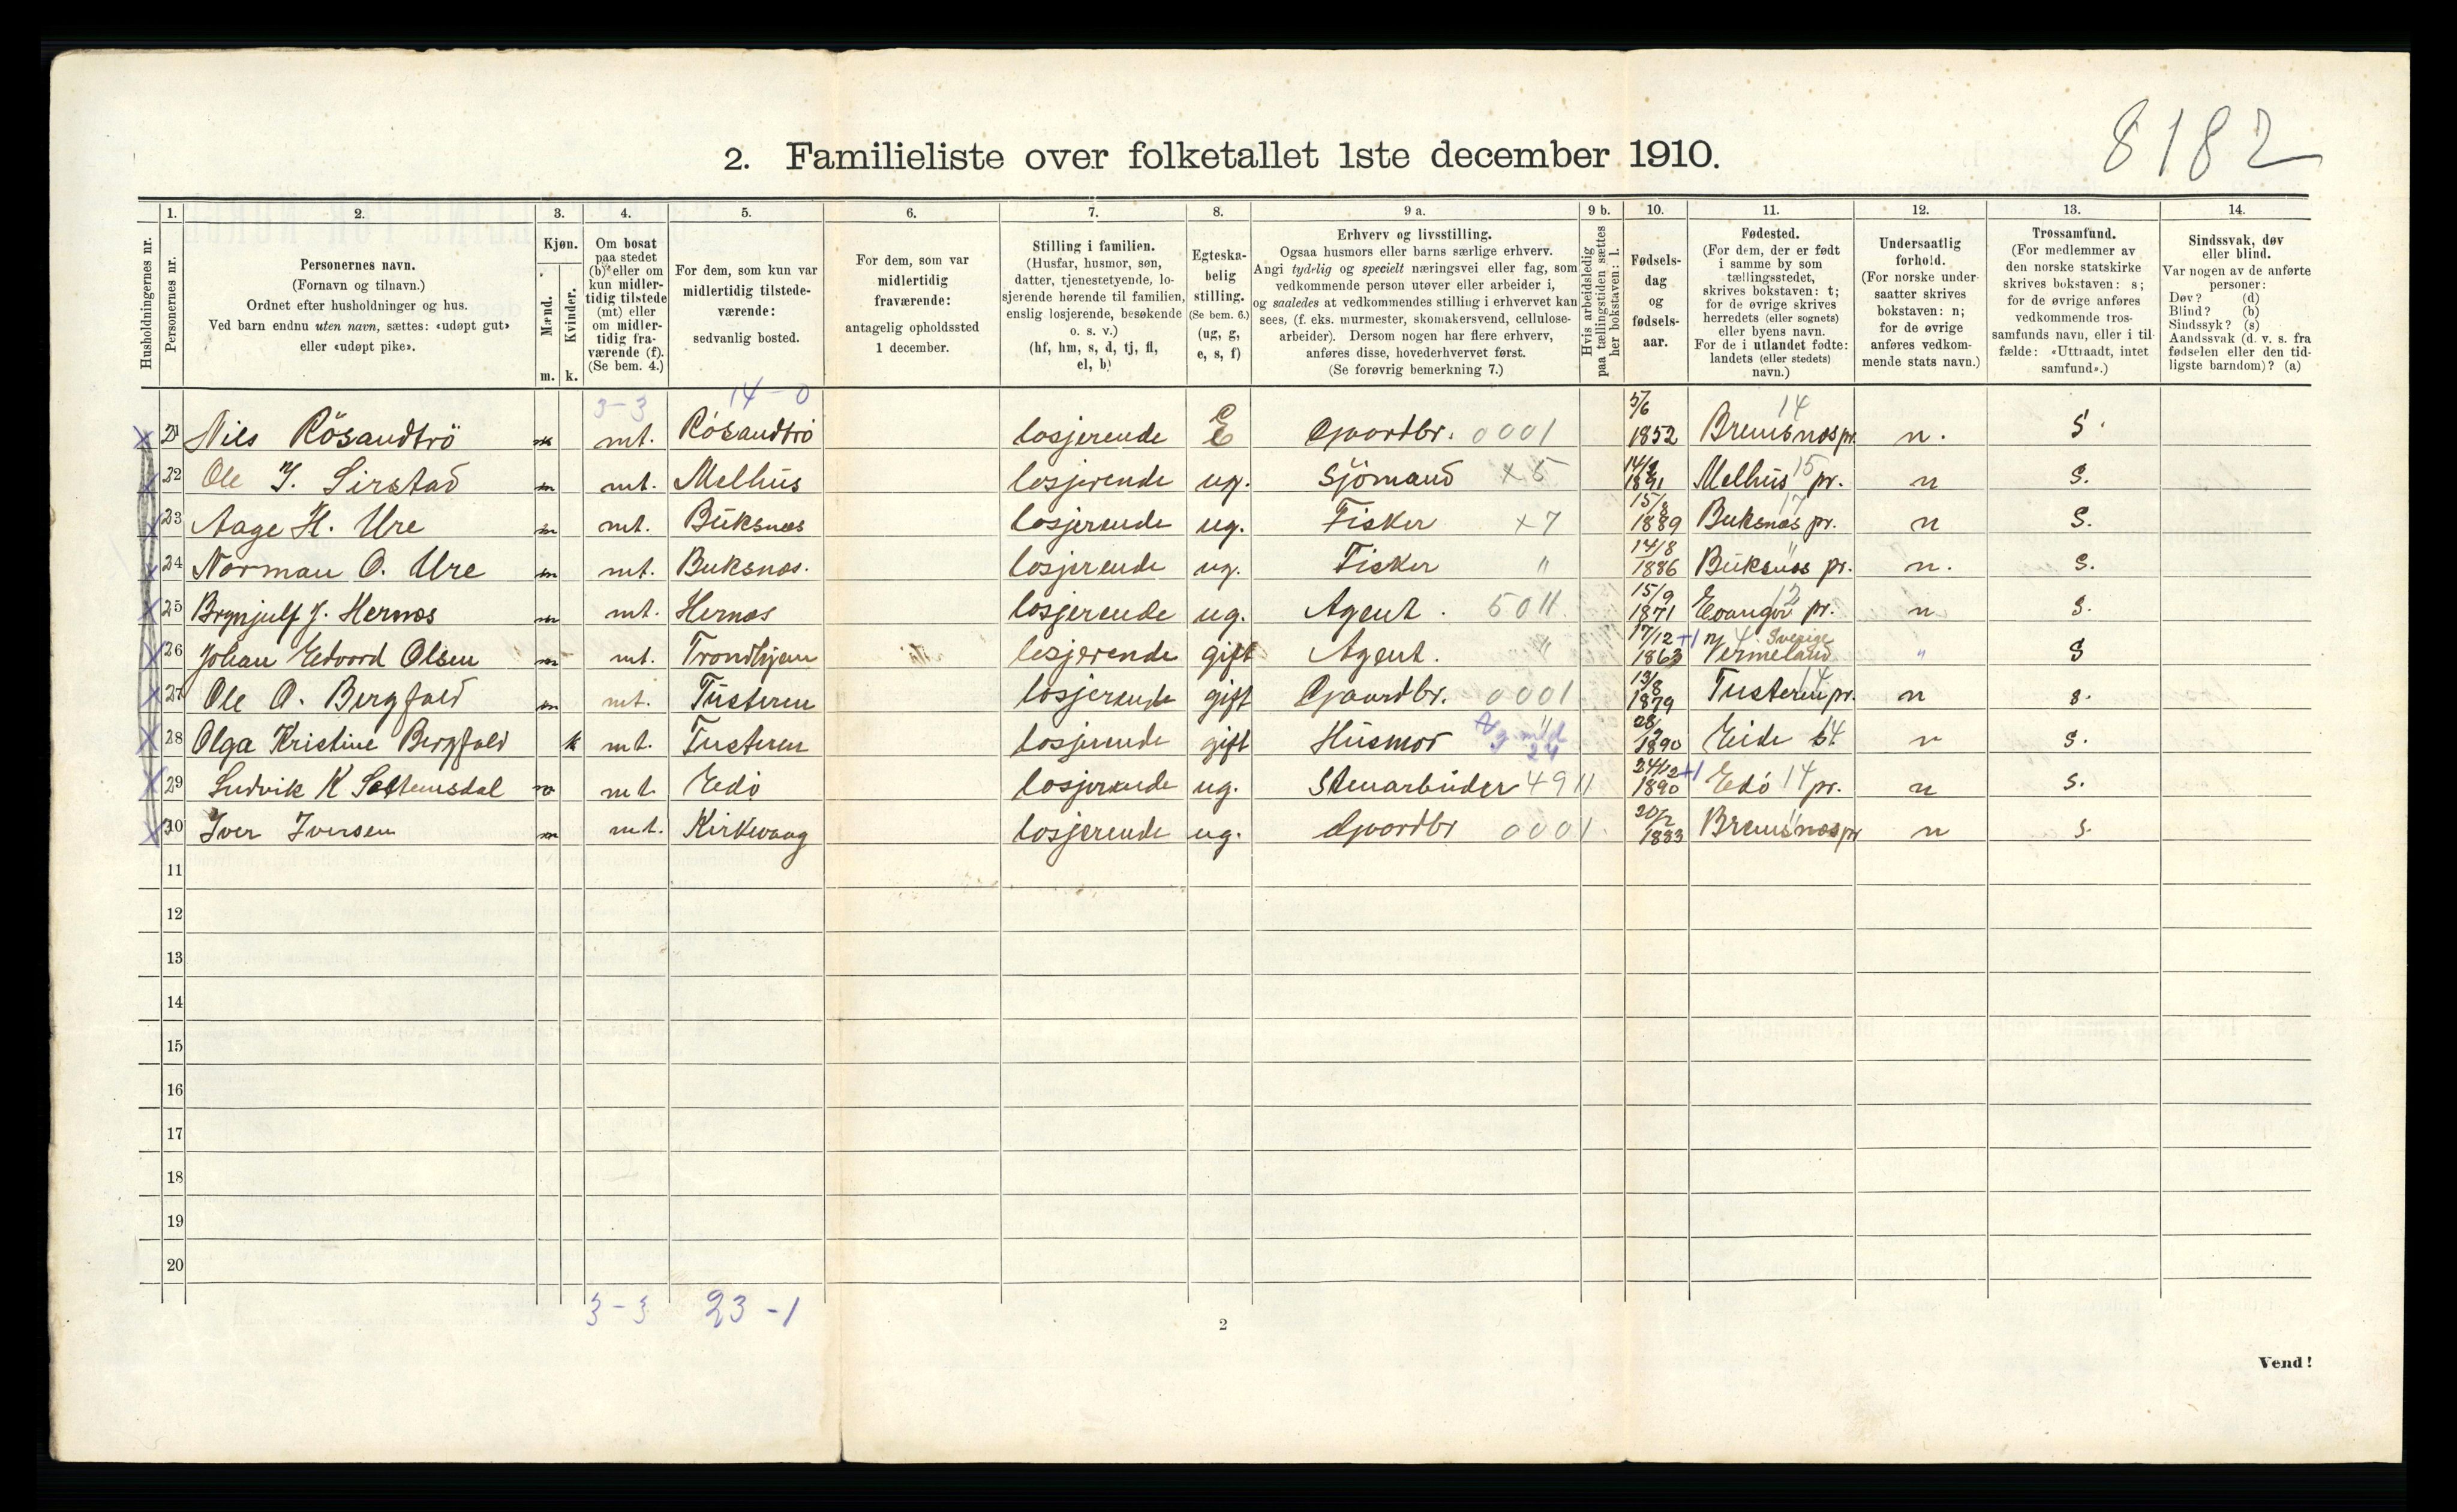 8182
2. Familieliste over folketallet 1ste december 1910.
Husholdningernes nr.
1. Personernes nr.
2. Personernes navn.
(Fornavn og tilnavn.)
Ordnet efter husholdninger og hus.
Ved barn endnu uten navn, sættes: «udøpt gut»
eller «udøpt pike».
3. Kjøn.
Mænd. m.
Kvinder. k.
4. Om bosat
paa stedet
(b) eller om
kun midler-
tidig tilstede
(mt) eller
om midler-
tidig fra-
værende (f).
(Se bem. 4.)
5. For dem, som kun var
midlertidig tilstede-
værende:
sedvanlig bosted.
6. For dem, som var
midlertidig
fraværende:
antagelig opholdssted
1 december.
7. Stilling i familien.
(Husfar, husmor, søn,
datter, tjenestetyende, lo-
sjerende hørende til familien,
enslig losjerende, besøkende
o. s. v.)
(hf, hm, s, d, tj, fl,
el, b)
8. Egteska-
belig
stilling.
(Se bem. 6.)
(ug, g,
e, s, f)
9 a. Erhverv og livsstilling.
Ogsaa husmors eller barns særlige erhverv.
Angi tydelig og specielt næringsvei eller fag, som
vedkommende person utøver eller arbeider i,
og saaledes at vedkommendes stilling i erhvervet kan
sees, (f. eks. murmester, skomakersvend, cellulose-
arbeider). Dersom nogen har flere erhverv,
anføres disse, hovederhvervet først.
(Se forøvrig bemerkning 7.)
9 b. Hvis arbeidsledig
paa tællingstiden sættes
her bokstaven: l.
10. Fødsels-
dag
og
fødsels-
aar.
11. Fødested.
(For dem, der er født
i samme by som
tællingsstedet,
skrives bokstaven: t;
for de øvrige skrives
herredets (eller sognets)
eller byens navn.
For de i utlandet fødte:
landets (eller stedets)
navn.)
12. Undersaatlig
forhold.
(For norske under-
saatter skrives
bokstaven: n;
for de øvrige
anføres vedkom-
mende stats navn.)
13. Trossamfund.
(For medlemmer av
den norske statskirke
skrives bokstaven: s;
for de øvrige anføres
vedkommende tros-
samfunds navn, eller i til-
fælde: «Uttraadt, intet
samfund».)
14. Sindssvak, døv
eller blind.
Var nogen av de anførte
personer:
Døv? (d)
Blind? (b)
Sindssyk? (s)
Aandssvak (d. v. s. fra
fødselen eller den tid-
ligste barndom)? (a)
3-3 14-0
21 Nils Rösandtrö m mt. Rösandtrö losjerende E Gaardbr. 0001 5/6 1852 Bremsnæs pr. 14 n. S.
22 Ole J. Sirstad m mt. Melhus losjerende ug. Sjömand x5 1891 Melhus pr. 15 n S.
23 Aage H. Ure m mt. Buksnæs losjerende ug. Fisker x7 15/8 1889 Buksnæs pr. 17 n S.
24 Norman O. Ure m mt. Buksnæs. losjerende ug. Fisker " 14/8 1886 Buksnæs pr. " n. S.
25 Brynjulf J. Hernæs m mt. Hernæs losjerende ug. Agent. 5011 15/9 1871 Evanger pr. 12 n S.
26 Johan Edvard Olsen m mt. Trondhjem losjerende gift Agent. " 17/12 1863 +1 Vermeland Sverige " S
27 Ole O. Bergfald m mt. Tusteren losjerende gift Gaardbr. 0001 13/8 1879 Tusteren pr. 14 n s.
28 Olga Kristine Bergfald k mt. Tusteren losjerende gift Husmor " 1890 Eide n s.
29 Ludvik K Settemsdal m mt. Edö losjerende ug. Stenarbeider 4911 24/12 1890 +1 Edö pr. 14 n s.
30 Iver Iversen m mt. Kirkvaag losjerende ug. Gaardbr 0001. 20/2 1883 Bremsnæs pr " n s.
11
12
13
14
15
16
17
18
19
20
3-3 23-1
2
Vend!